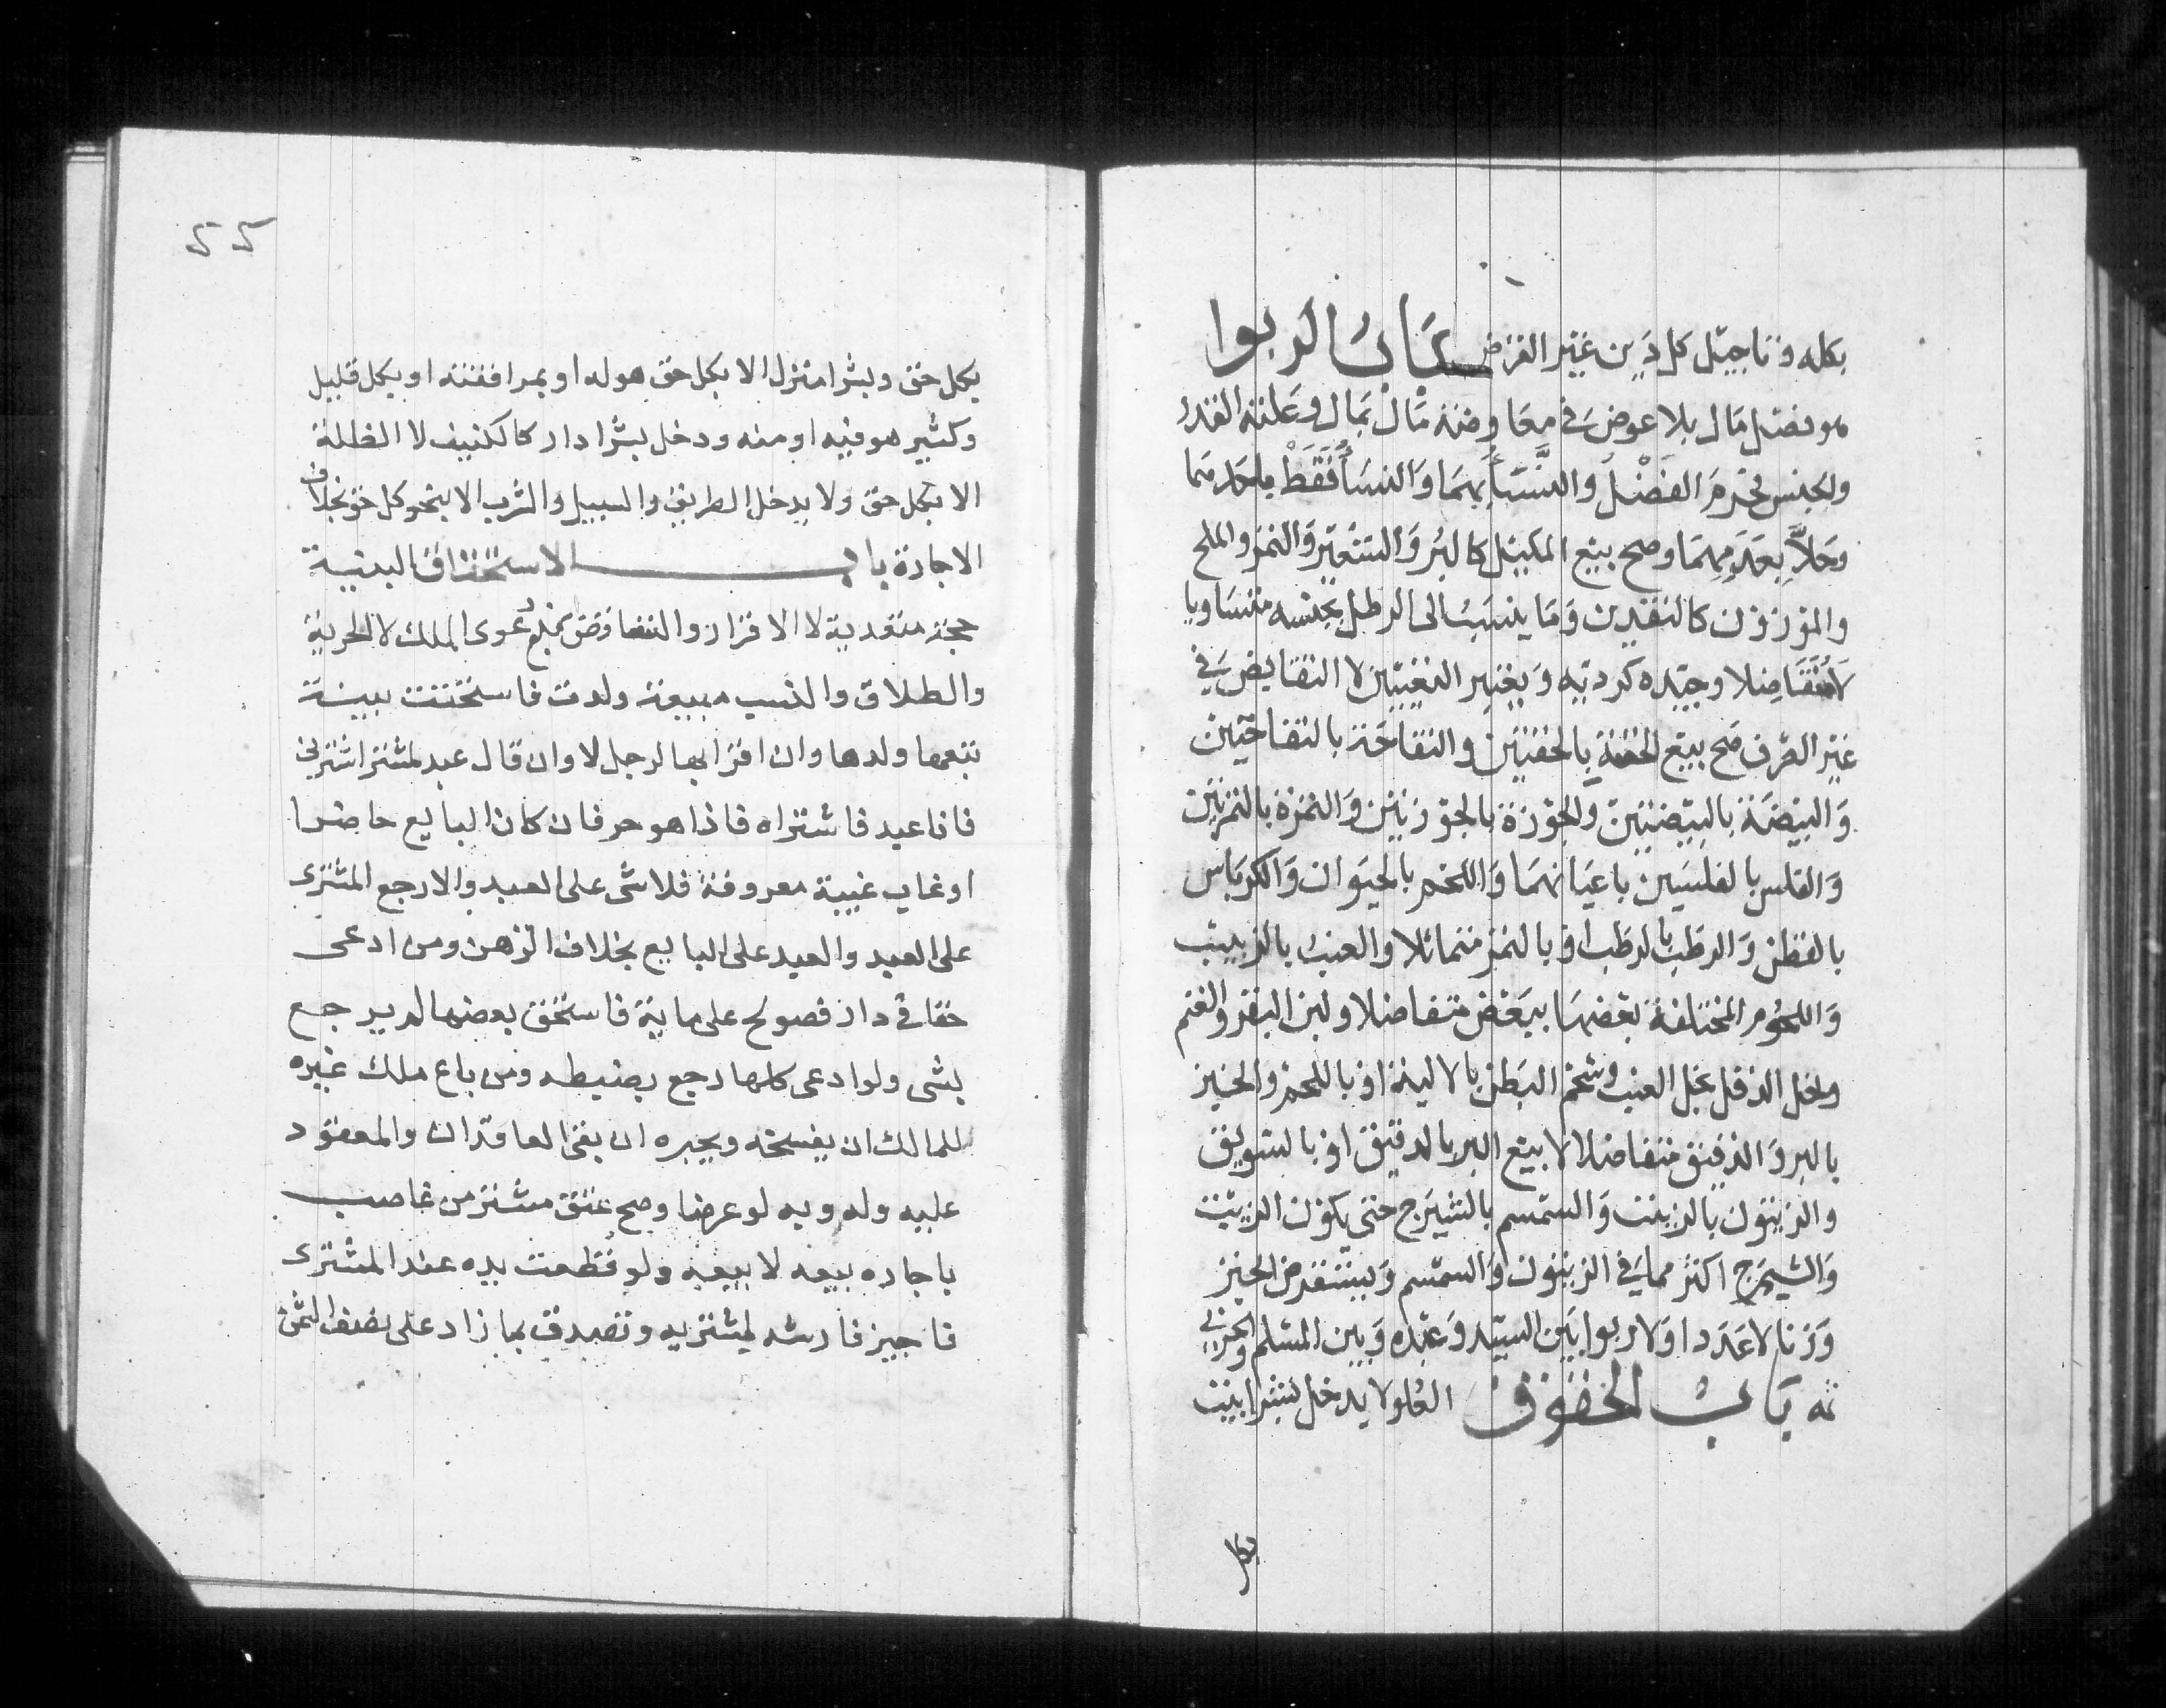 بكله وتاجيل كل دين غير القرض باب الربوا
هو فضل مال بلا عوض في معاوضة مال بمال وعلته القدر
والجنس فحرم الفضل والنسأ بهما والنسأ فقط باحدهما
وحلا بعدمهما وصح بيع المكيل كالبر والشعير والتمر والملح
والموزون كالنقدين وما ينسب الى الرطل بجنسه متساويا
لا متفاضلا وجيده كرديه ويعتبر التعيين لا التقابض في
غير الصرف صح بيع الحفنة بالحفنتين والتفاحة بالتفاحتين
والبيضة بالبيضتين والجوزة بالجوزتين والتمرة بالتمرتين
والفلس بالفلسين باعيانهما واللحم بالحيوان والكرباس
بالقطن والرطب بالرطب او بالتمر متماثلا والعنب بالزبيب
واللحوم المختلفة بعضها ببعض متفاضلا ولبن البقر والغنم
وخل الدقل بخل العنب وشحم البطن بالالية او باللحم والخبز
بالبر والدقيق متفاضلا لا بيع البر بالدقيق او بالسويق
والزيتون بالزيت والسمسم بالشيرج حتى يكون الزيت
والشيرج اكثر مما في الزيتون والسمسم ويستقرض الخبز
وزنا لا عددا ولا ربوا بين السيد وعبده وبين المسلم والحربي
ثمه باب الحقوق العلو لا يدخل بشرا بيت
بكل
55
بكل حق وبشرا منزل الا بكل حق هو له او بمرافقته او بكل قليل
وكثير هو فيه او منه ودخل بشرا دار كالكنيف لا الظلة
الا بكل حق ولا يدخل الطريق والسبيل والشرب الا بنحو كل حق بخلاف
الاجارة باب الاستحقاق البينة
حجة متعدية لا الاقرار والتناقض يمنع دعوى الملك لا الحرية
والطلاق والنسب مبيعة ولدت فاستحقت ببينة
تبعها ولدها وان اقر بها لرجل لا وان قال عبد لمشتر اشترني
فانا عبد فاشتراه فاذا هو حر فان كان البايع حاضرا
او غايب غيبة معروفة فلا شى على العبد والا رجع المشترى
على العبد والعبد على البايع بخلاف الرهن ومن ادعى
حقا في دار فصولح على ماية فاستحق بعضها لم يرجع
بشى ولو ادعى كلها رجع بضبطه ومن باع ملك غيره
للمالك ان يفسخه ويجيره ان بقى العاقدان والمعقود
عليه وله وبه لو عرضا وصح عتق مشتر من غاصب
باجاره بيعه لا بيعه ولو قطعت يده عند المشترى
فاجيز فارشه لمشتريه وتصدق بما زاد على نصف الثمن